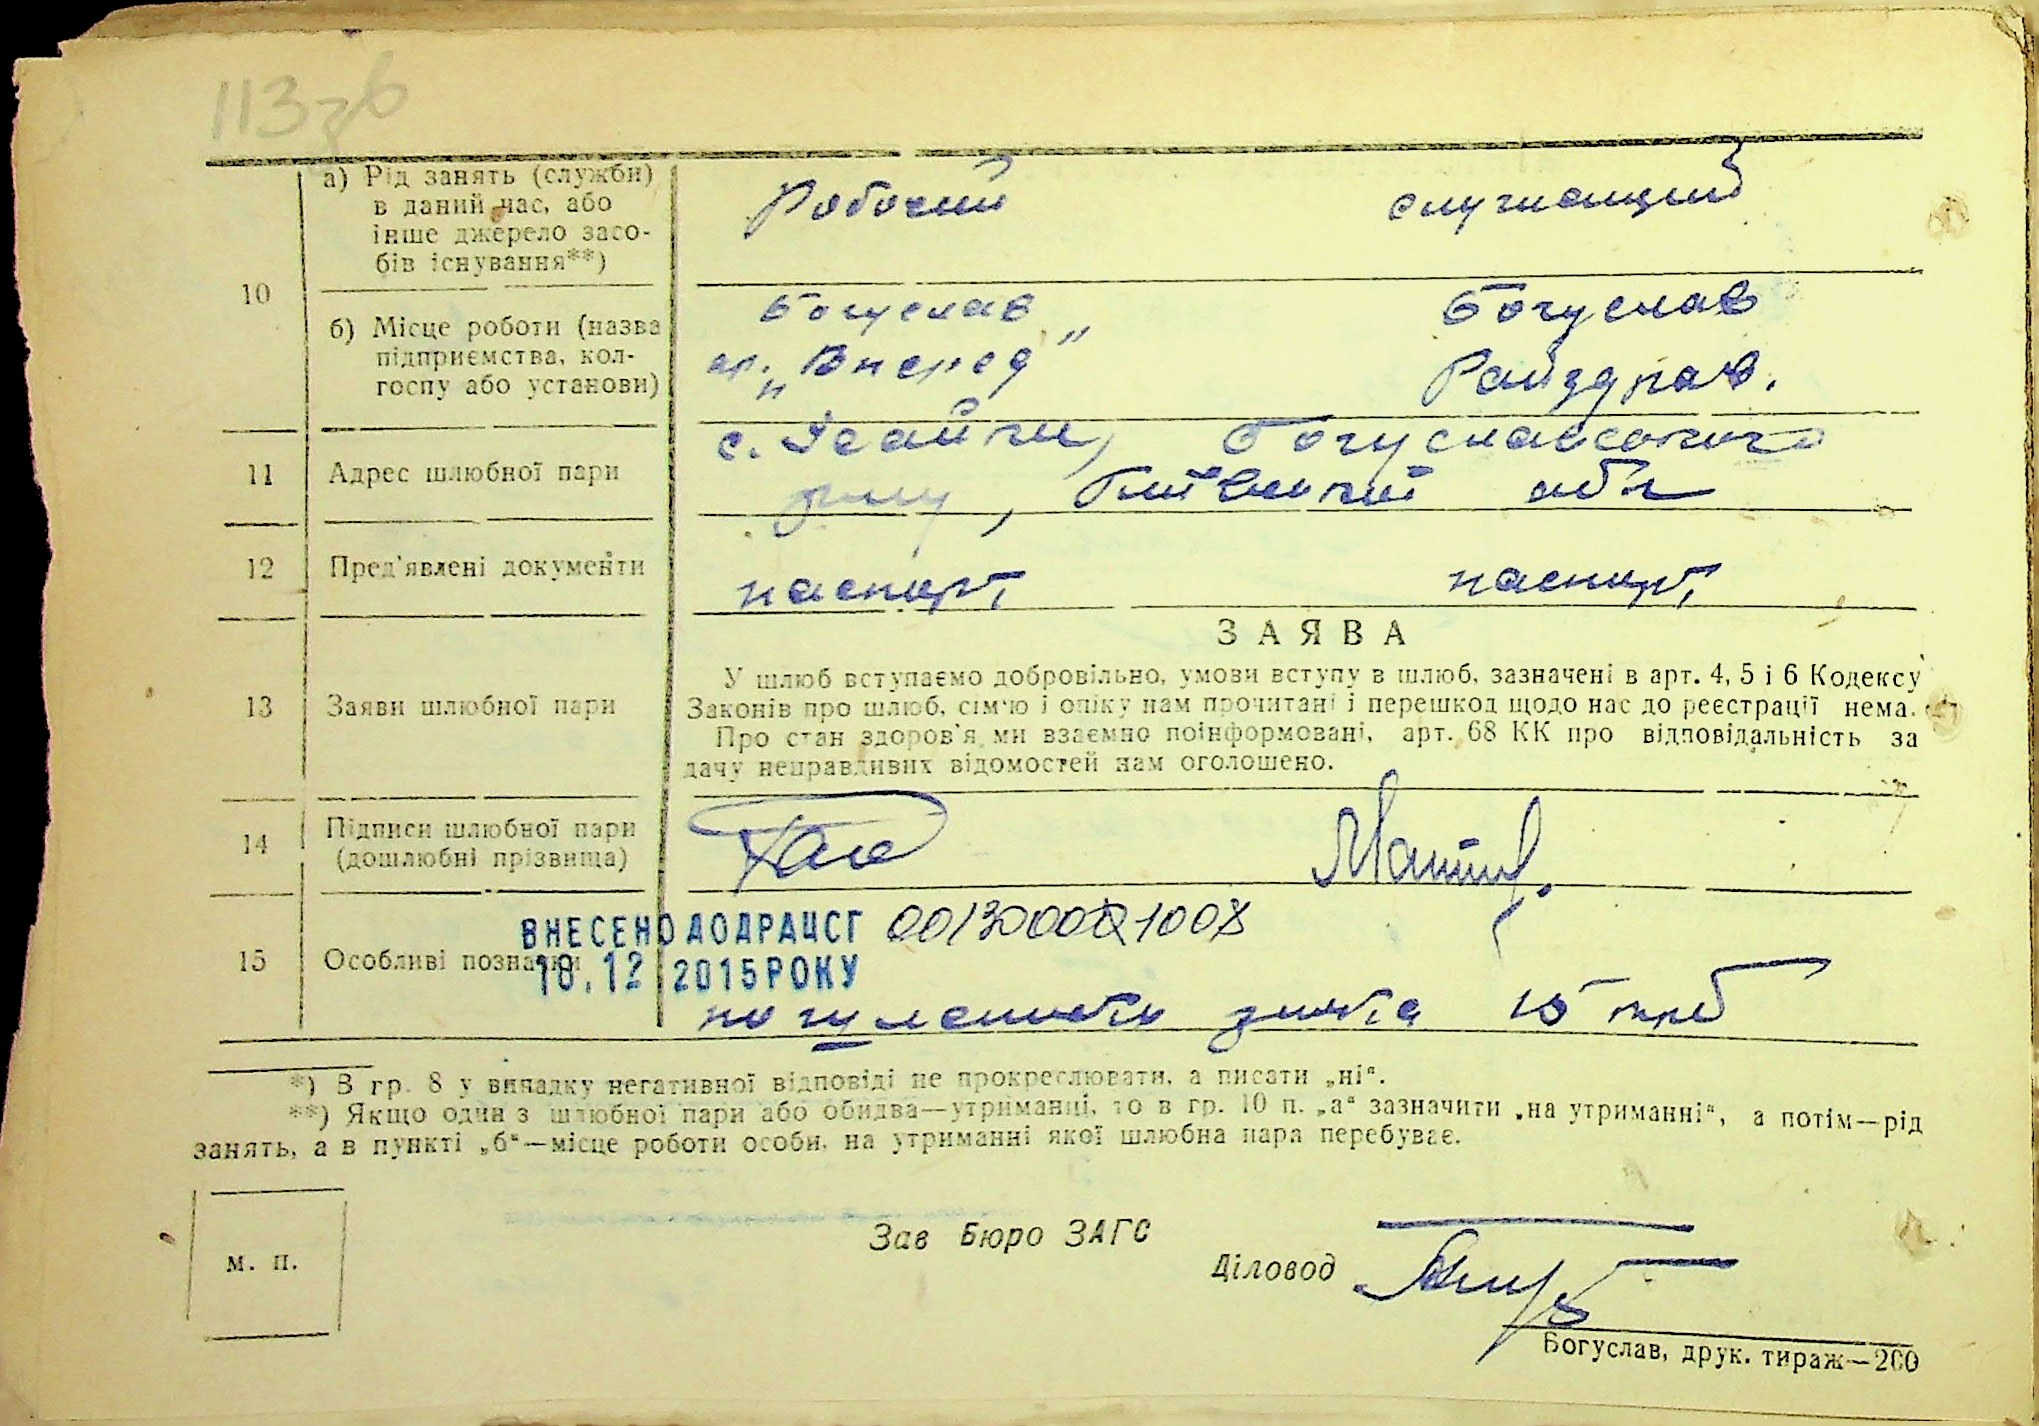 113зв
а) Рід занять (служби)
в даний час, або
інше джерело засо-
бів існування**)
Робочий
служащий
10
б) Місце роботи (назва
підприємства, кол-
госпу або установи)
Богуслав
ар. „Вперед"
Богуслав
Райздрав.
11
Адрес шлюбної пари
с. Ісайки, Богуславського
р-ну, Київської обл
12
Пред'явлені документи
паспорт,
паспорт,
13
Заяви шлюбної пари
ЗАЯВА
У шлюб вступаємо добровільно, умови вступу в шлюб, зазначені в арт. 4, 5 і 6 Кодексу
Законів про шлюб, сім'ю і опіку нам прочитані і перешкод щодо нас до реєстрації нема.
Про стан здоров'я ми взаємно поінформовані, арт. 68 КК про відповідальність за
дачу неправдивих відомостей нам оголошено.
14
Підписи шлюбної пари
(дошлюбні прізвища)
15
Особливі познаки
ВНЕСЕНО ДО ДРАЦСГ 00130001008
18.12 2015 РОКУ
15 крб
*) В гр. 8 у випадку негативної відповіді не прокреслювати, а писати „ні“.
**) Якщо один з шлюбної пари або обидва—утриманці, то в гр. 10 п. „а“ зазначити „на утриманні“, а потім—рід
занять, а в пункті „б“—місце роботи особи, на утриманні якої шлюбна пара перебуває.
м. п.
Зав Бюро ЗАГС
Діловод
Богуслав, друк. тираж—200